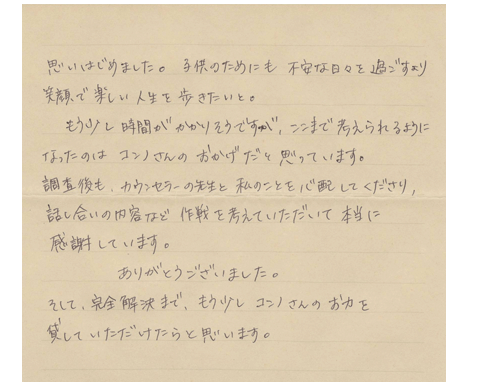 思いはじめました。子供のためにも 不安な日々を過ごすより
笑顔で楽しい人生を歩きたいと。
もう少し時間がかかりそうですが、ここまで考えられるように
なったのは コンノさんの おかげだと 思っています。
調査後も、カウンセラーの先生と 私のことを心配してくださり、
話し合いの内容など 作戦を考えていただいて 本当に
感謝しています。
ありがとうございました。
そして、完全解決まで、もう少し コンノさんの お力を
貸していただけたらと思います。